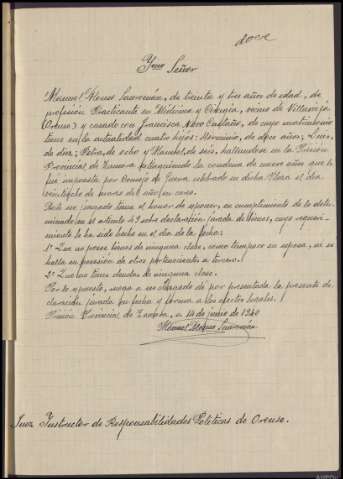 doce
Yltmo Señor
Manuel Alonso Sauermán, de treinta y tres años de edad, de
profesión Practicante en Medicina y Cirugía, vecino de Villavieja
(Orense) y casado con Francisca Castaño, de cuyo matrimonio
tiene en la actualidad cuatro hijos: Herminia, de doce años; Luis,
de diez; Petra, de ocho y Manuel, de seis, hallandose en la Prisión
Provincial de Zamora extinguiendo la condena de nueve años que le
fué impuesta por Consejo de Guerra celebrado en dicha Plaza el día
veintiocho de marzo del año en curso.
Ante su Juzgado tiene el honor de exponer, en cumplimiento de lo deter-
minado en el artículo 49 sobre declaración jurada de bienes, cuyo requeri-
miento le ha sido hecho en el día de la fecha:
1º Que no posee bienes de ninguna clase, como tampoco su esposa, ni se
halla en posesión de otros pertenecientes a tercero.
2º Que no tiene deudas de ninguna clase.
Por lo expuesto, ruega a ese Juzgado dé por presentada la presente de-
claración jurada en fecha y forma a los efectos legales.
Prisión Provincial de Zamora, a 14 de junio de 1940
Manuel Alonso Sauermán
Juez Instructor de Responsabilidades Políticas de Orense.